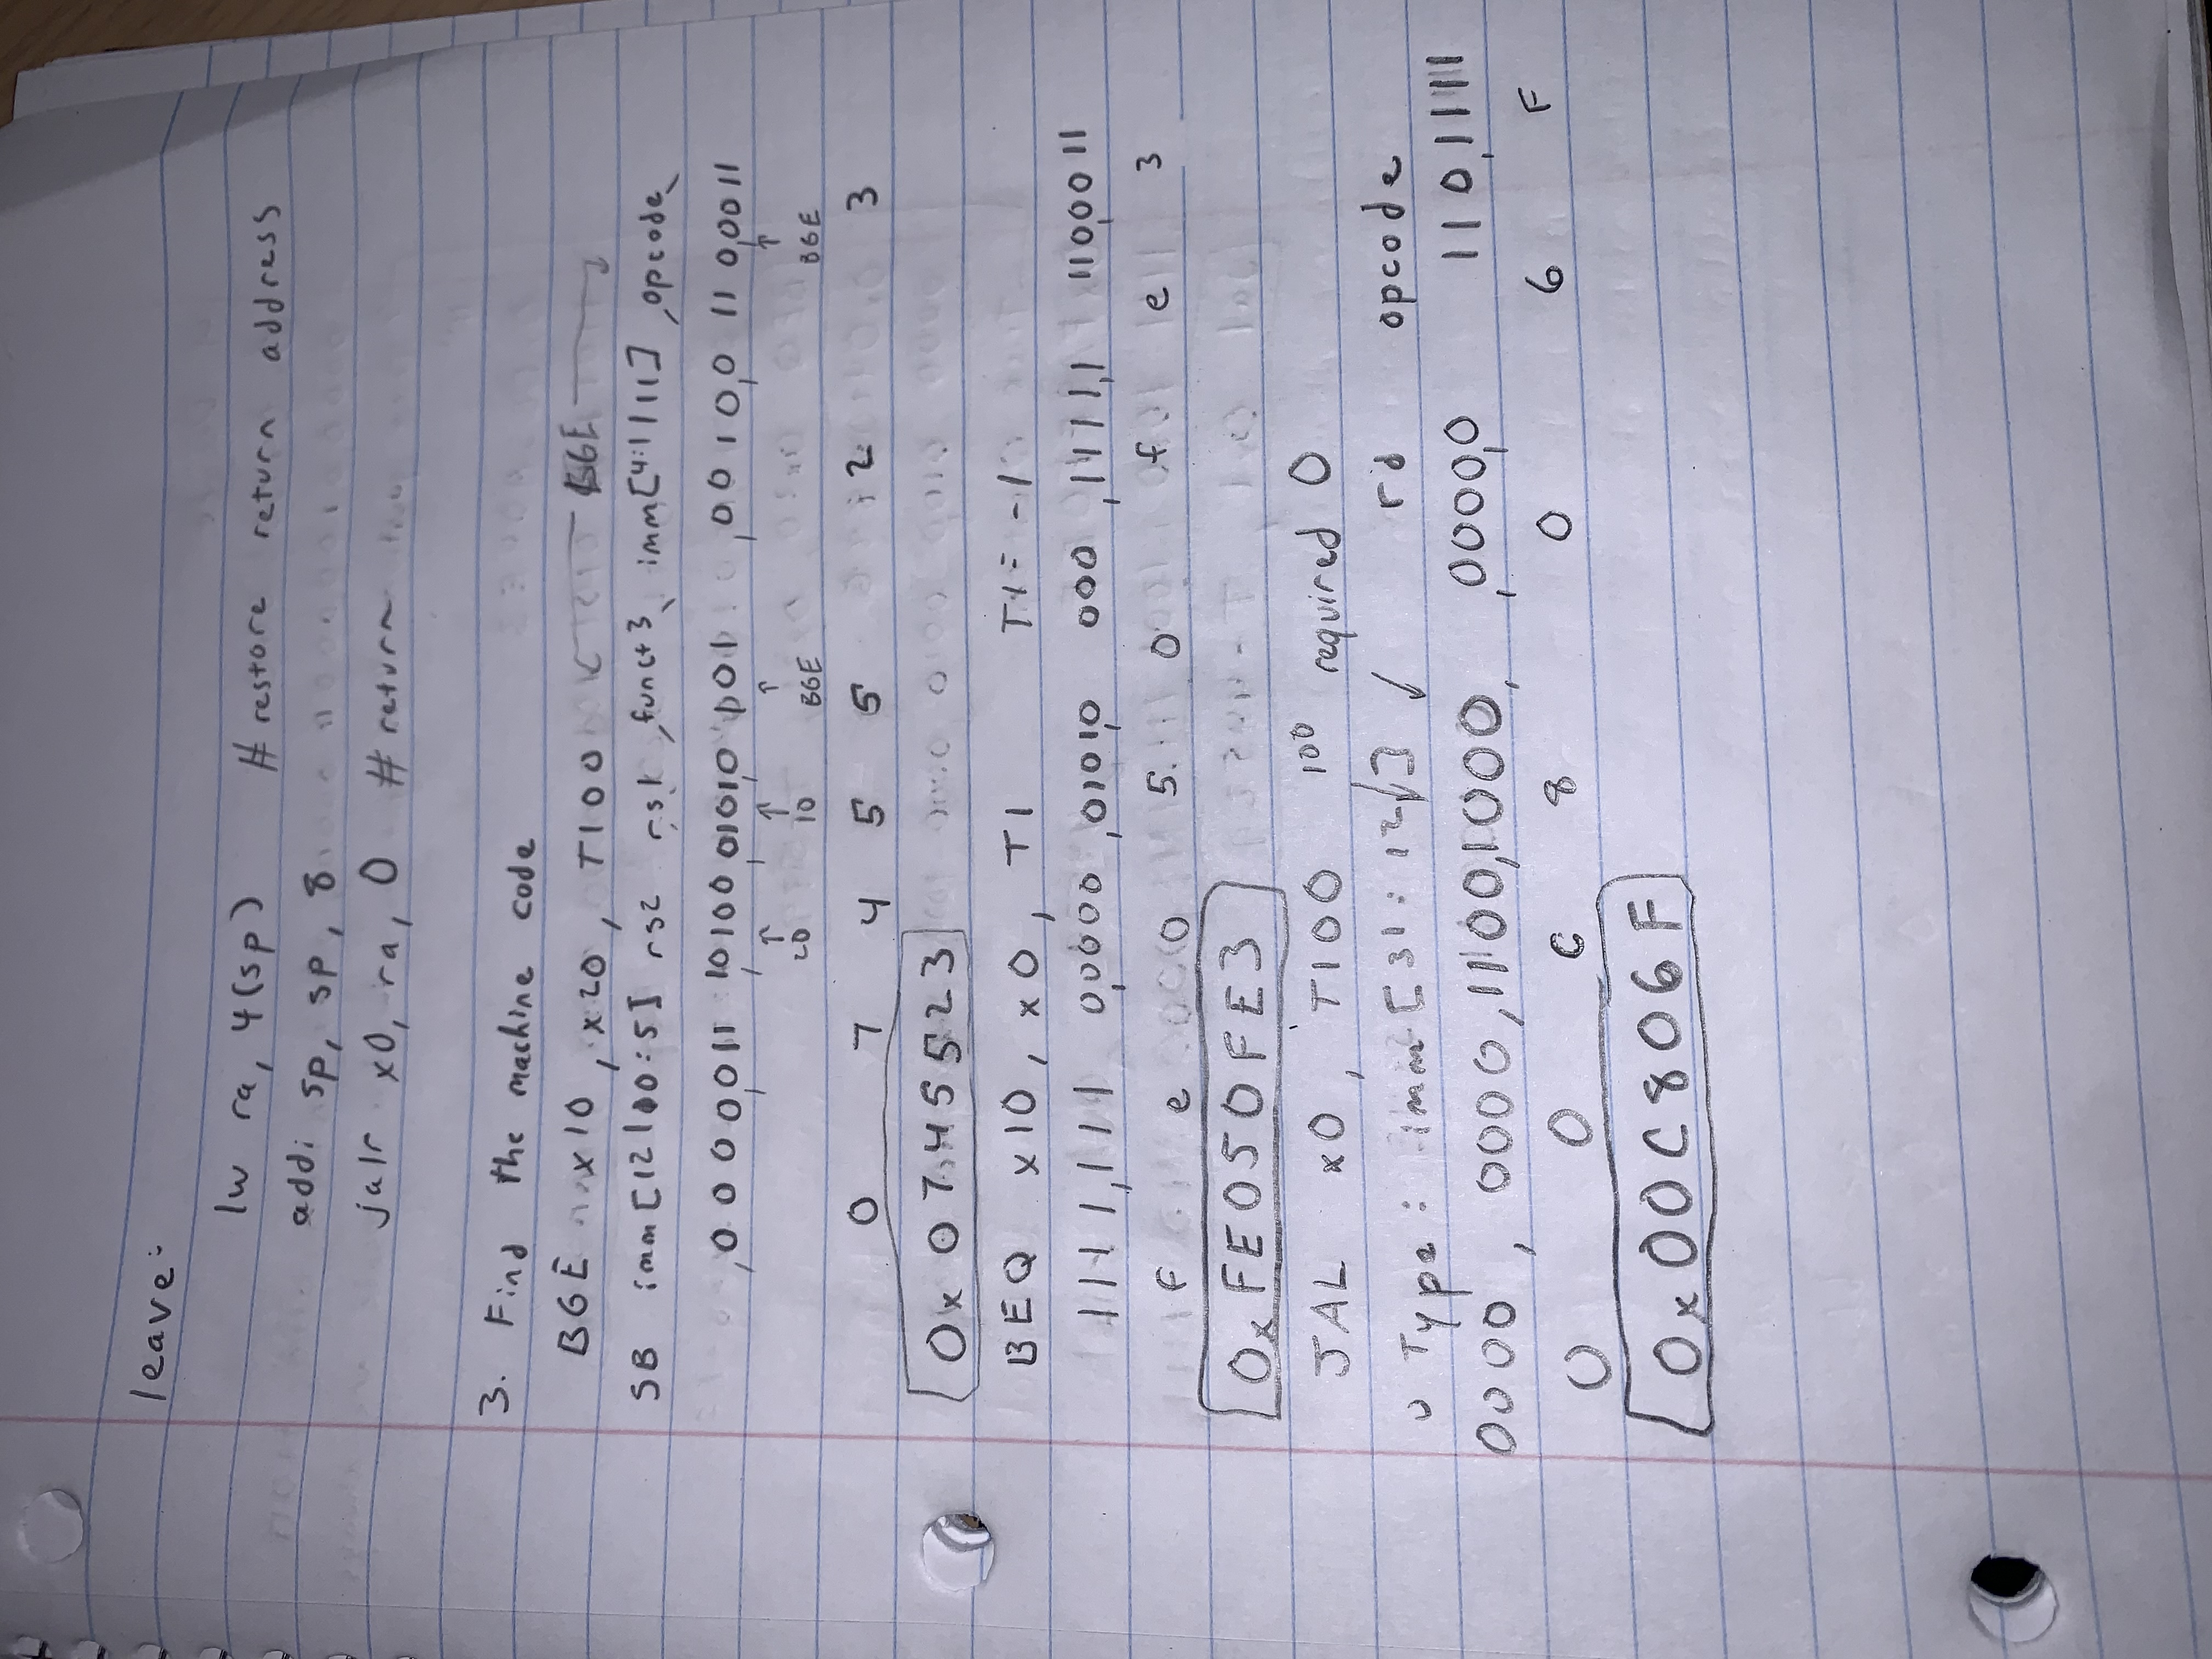 leave:
lw ra, 4(sp) # restore return address
addi sp, sp, 8
jalr x0, ra, 0 # return
3. Find the machine code
BGE x10, x20, T100 BGE
SB imm[12|10:5] rs2 rs1 funct3 imm[4:1|11] opcode
0000011 10100 01010 101 00100 1100011
↑ ↑ ↑ ↑
20 10 BGE BGE
0 7 4 5 5 2 3
0x0745523
BEQ x10, x0, T1 T1 = -1
1111,111 00000 ,01010 000 ,11111 1100011
f e 0 5 0 f e 3
0xFE050FE3
JAL x0, T100 100 required 0
U Type: imm[31:12] ↓ rd opcode
0000, 0000,1100,1000, ,00000 110,1111
0 0 C 8 0 6 F
0x00C806F